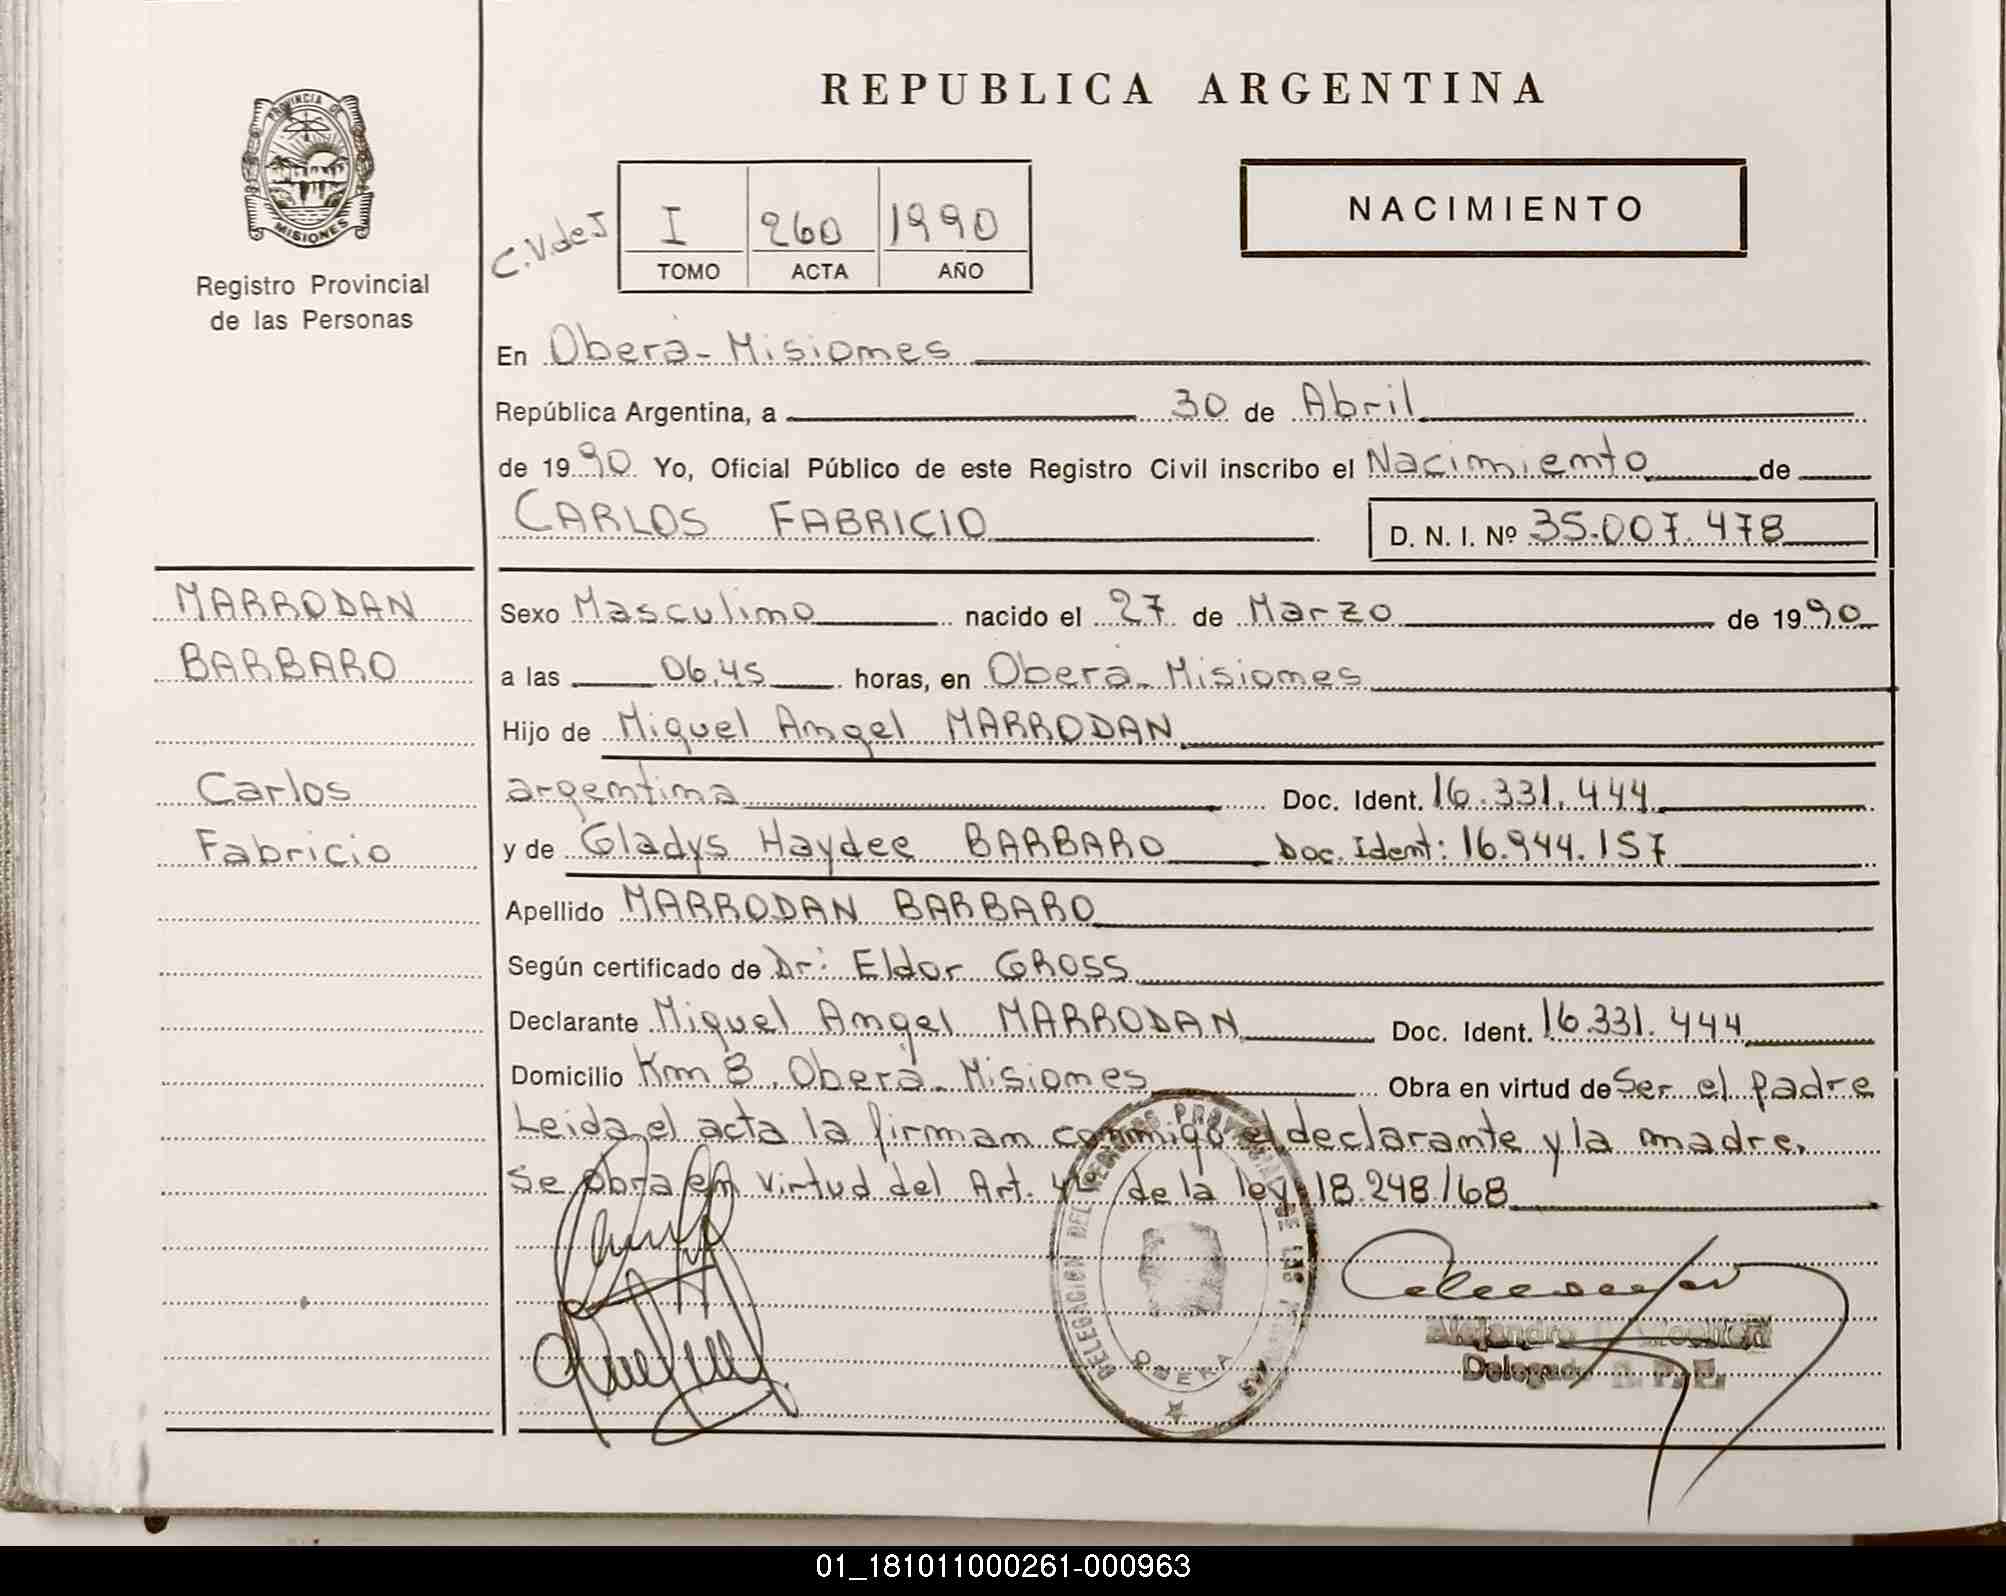 REPUBLICA ARGENTINA
PROVINCIA DE
MISIONES
Registro Provincial
de las Personas
NACIMIENTO
C.V.deJ
I 260 1990
TOMO ACTA AÑO
En Oberá - Misiones
República Argentina, a 30 de Abril
de 1990 Yo, Oficial Público de este Registro Civil inscribo el Nacimiento de
CARLOS FABRICIO D. N. I. Nº 35.007.478
MARRODAN
BARBARO
Carlos
Fabricio
Sexo Masculino nacido el 27 de Marzo de 1990
a las 06,45 horas, en Oberá - Misiones
Hijo de Miguel Angel MARRODAN
argentina Doc. Ident. 16.331.444
y de Gladys Haydee BARBARO Doc. Ident: 16.944.157
Apellido MARRODAN BARBARO
Según certificado de Dr: Eldor GROSS
Declarante Miguel Angel MARRODAN Doc. Ident. 16.331.444
Domicilio Km 8. Oberá - Misiones Obra en virtud de Ser el padre
Leida el acta la firman conmigo el declarante y la madre.
Se obra en virtud del Art. 4º de la ley 18.248/68
DELEGACION DEL REGISTRO PROVINCIAL DE LAS PERSONAS
OBERA
Alejandro
Delegado R. P. P.
01_181011000261-000963